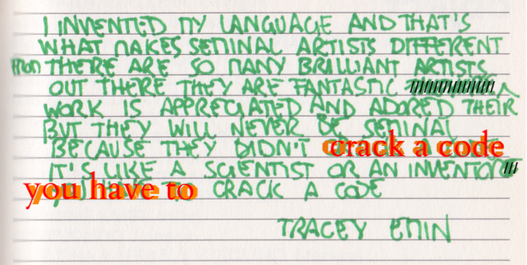 I INVENTED MY LANGUAGE AND THAT'S
WHAT MAKES SEMINAL ARTISTS DIFFERENT
THERE ARE SO MANY BRILLIANT ARTISTS
OUT THERE THEY ARE FANTASTIC
WORK IS APPRECIATED AND ADORED THEIR
BUT THEY WILL NEVER BE SEMINAL
BECAUSE THEY DIDN'T crack a code
IT'S LIKE A SCIENTIST OR AN INVENTOR
you have to CRACK A CODE
TRACEY EMIN